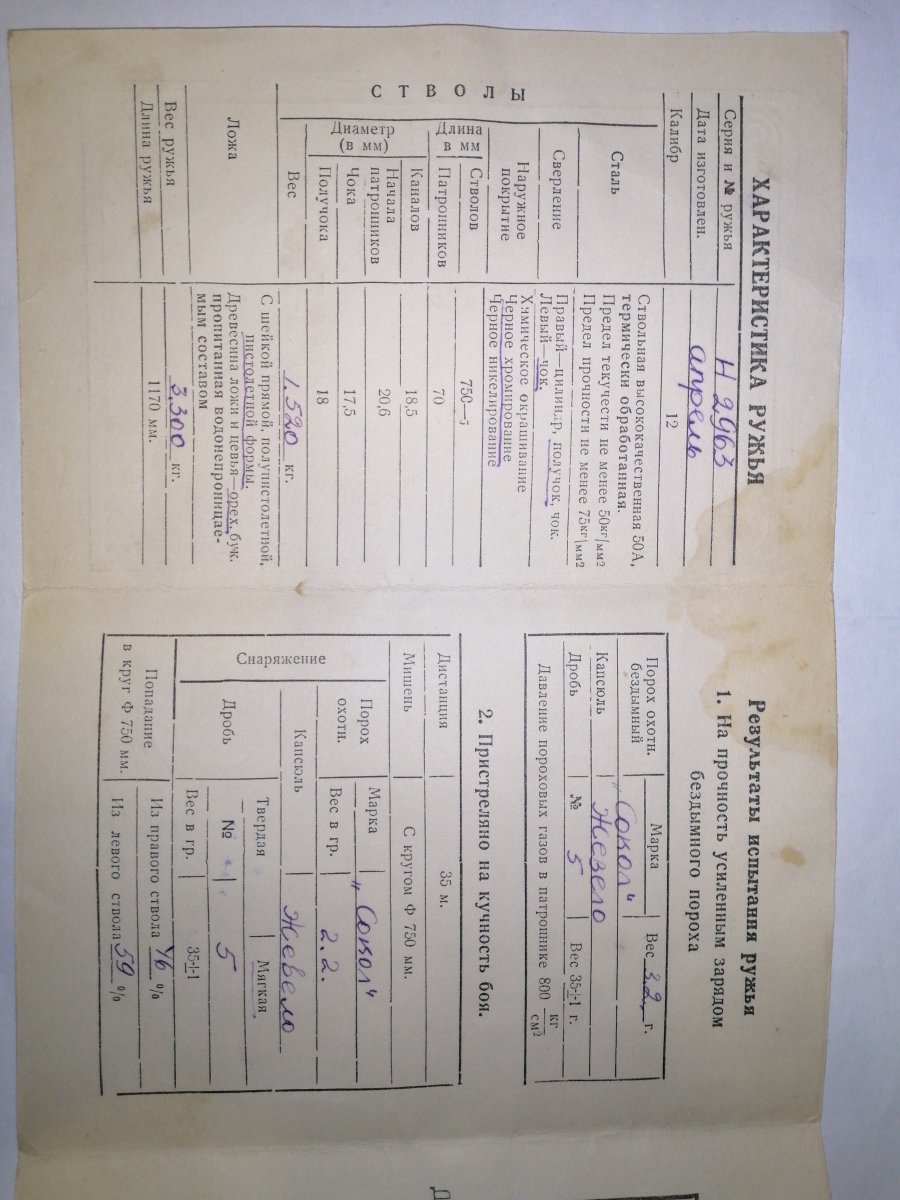 ХАРАКТЕРИСТИКА РУЖЬЯ
Серия и № ружья Н 2963
Дата изготовлен. апрель
Калибр 12
СТВОЛЫ
Сталь
Ствольная высококачественная 50А,
термически обработанная.
Предел текучести не менее 50кг/мм2
Предел прочности не менее 75кг/мм2
Сверление
Правый—цилиндр, получок, чок.
Левый—чок.
Наружное
покрытие
Химическое окрашивание
Черное хромирование
Черное никелирование
Длина
в мм
Стволов 750—5
Патронников 70
Диаметр
(в мм)
Каналов 18,5
Начала
патронников 20,6
Чока 17,5
Получока 18
Вес 1.520 кг.
Ложа
С шейкой прямой, полупистолетной,
пистолетной формы.
Древесина ложи и цевья—орех, бук.
пропитанная водонепроницае-
мым составом
Вес ружья 3.300 кг.
Длина ружья 1170 мм.
Результаты испытания ружья
1. На прочность усиленным зарядом
бездымного пороха
Порох охотн.
бездымный
Марка Вес 3.2, г.
„Сокол"
Капсюль Жевело
Дробь № 5 Вес 35±1 г.
Давление пороховых газов в патроннике 800 кг
см2
2. Пристреляно на кучность боя.
Дистанция 35 м.
Мишень С кругом Ф 750 мм.
Снаряжение
Порох
охотн.
Марка „Сокол"
Вес в гр. 2.2.
Капсюль Жевело
Дробь
Твердая Мягкая
№ 5
Вес в гр. 35±1
Попадание
в круг Ф 750 мм.
Из правого ствола 46 %
Из левого ствола 59 %
Д